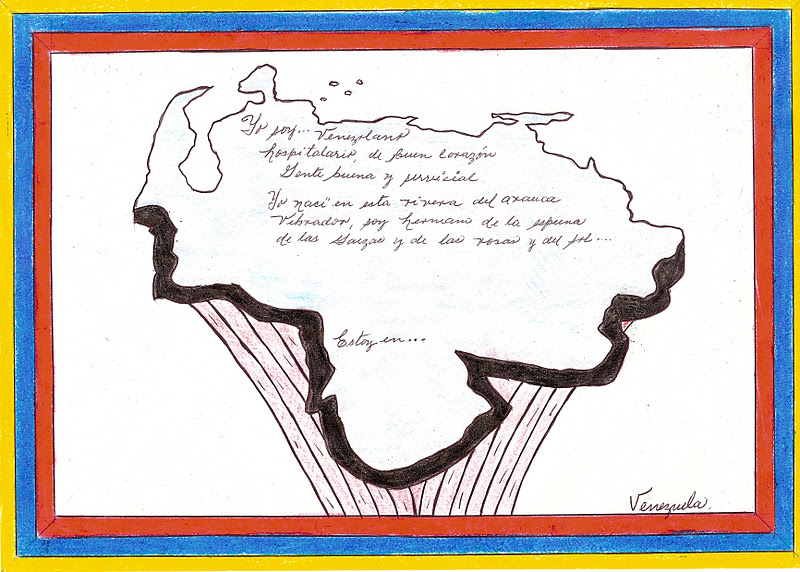 Yo soy... Venezolano
hospitalario, de buen corazón
Gente buena y servicial
Yo nací en esta rivera del arauca
Vibrador, soy hermano de la espuma
de las Garzas y de las rosas y del sol...
Estoy en...
Venezuela.